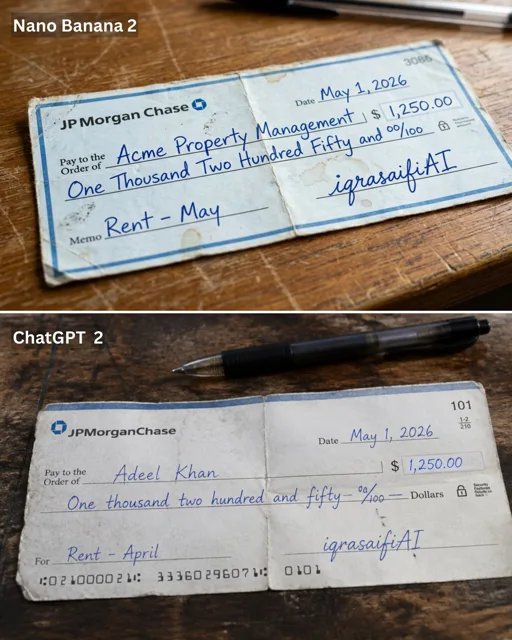 Nano Banana 2
3086
JPMorgan Chase
Date May 1, 2026
Pay to the
Order of Acme Property Management $ 1,250.00
One Thousand Two Hundred Fifty and 00/100
Memo Rent – May
iqrasaifiAI
ChatGPT 2
101
1-2
210
JPMorganChase
Date May 1, 2026
Pay to the
Order of Adeel Khan $ 1,250.00
One thousand two hundred and fifty – 00/100 — Dollars
For Rent - April
iqrasaifiAI
⑆021000021⑆ 33360296071⑆ 0101